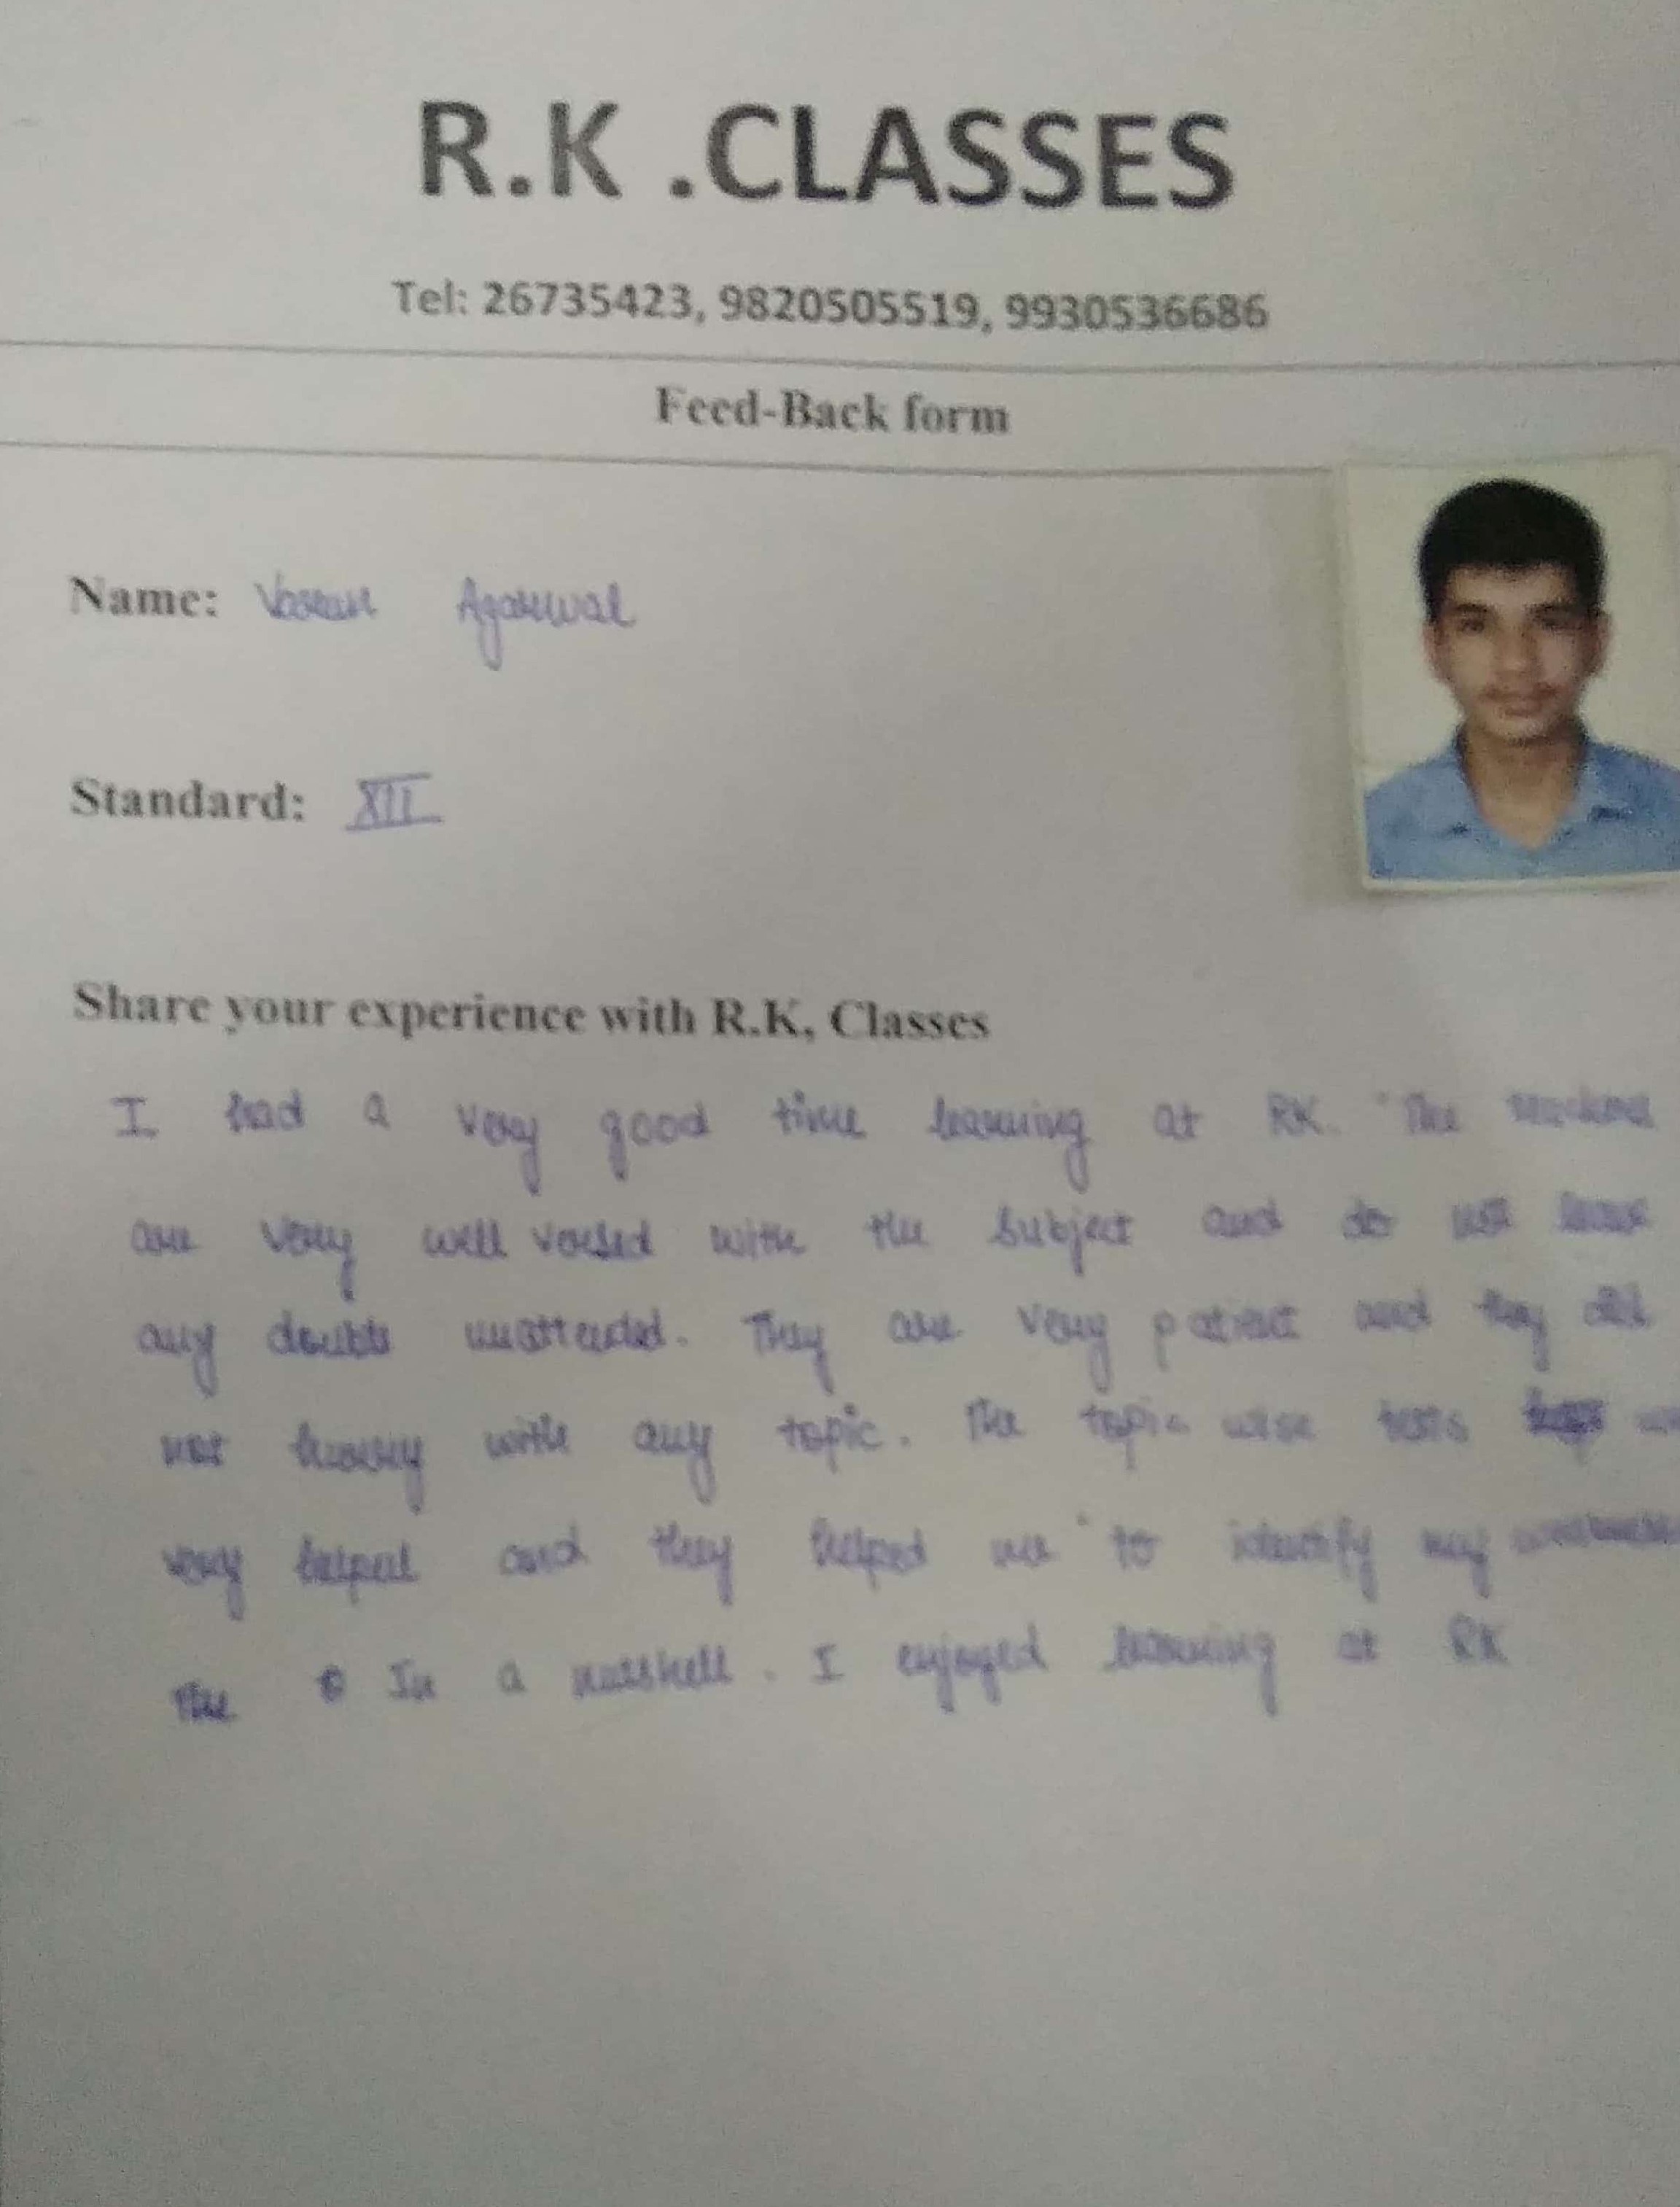 R.K .CLASSES
Tel: 26735423, 9820505519, 9930536686
Feed-Back form
Name: Agarwal
Standard: XII
Share your experience with R.K, Classes
I had a very good time learning at RK. The teachers
are very well versed with the subject and do not leave
any doubts unattended. They are very patient and they did
not hurry with any topic. The topic wise tests
very helpul and they helped me to identify my
the In a nutshell. I enjoyed learning at RK